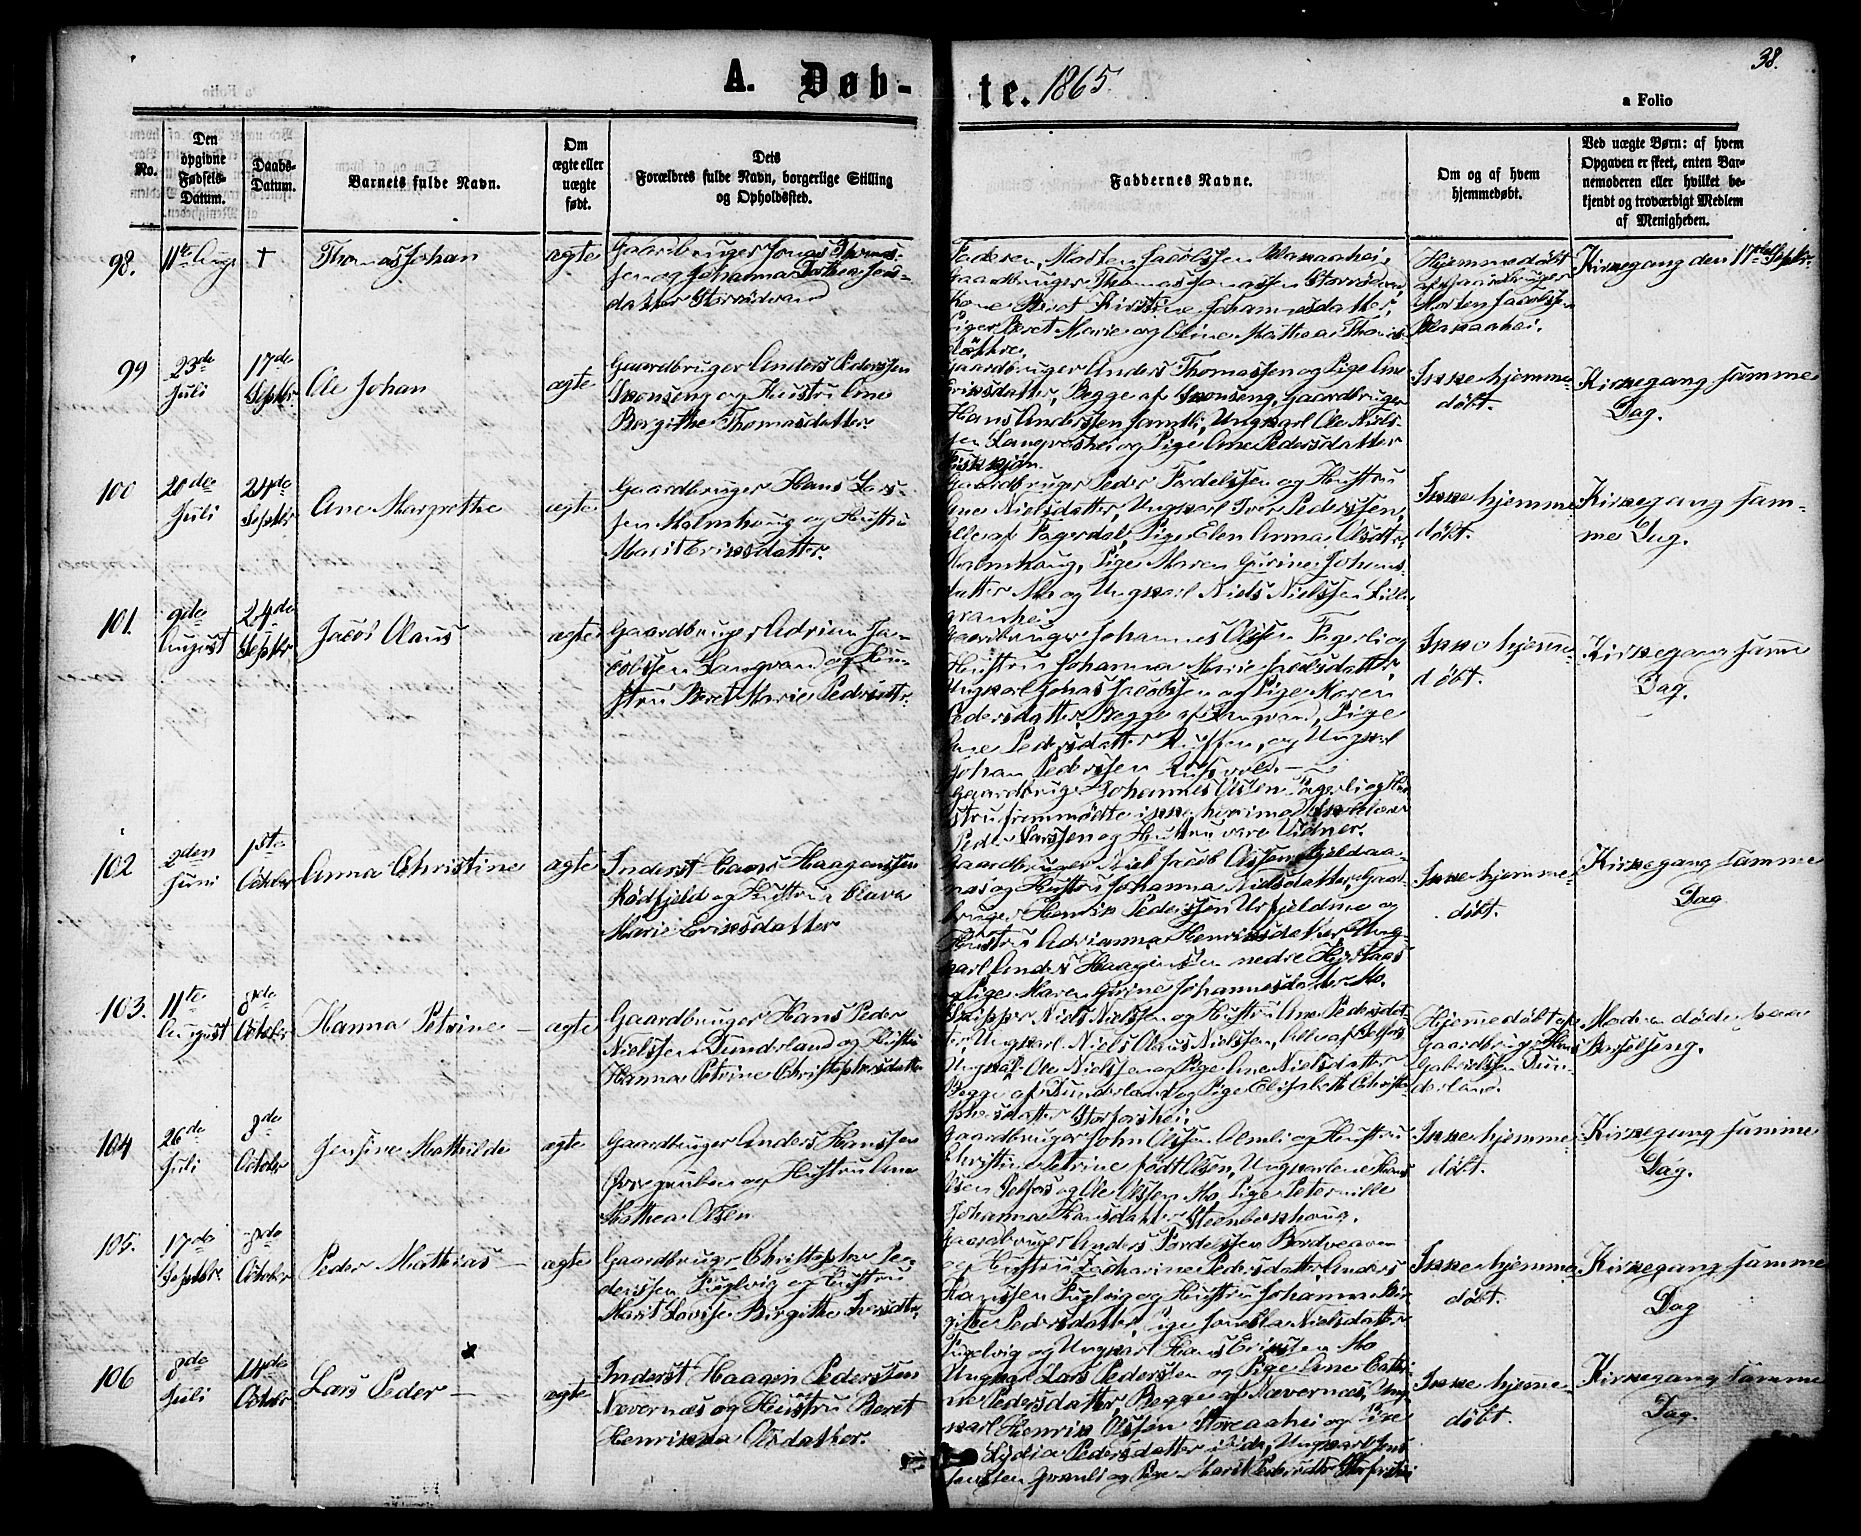 38.
A. Døb-
te. 1865.
a Folio
No.
Den
opgivne
Fødsels-
Datum.
Daabs-
Datum.
Barnets fulde Navn.
Om
ægte eller
uægte
født.
Dets
Forældres fulde Navn, borgerlige Stilling
og Opholdssted.
Faddernes Navne.
Om og af hvem
hjemmedøbt.
Ved uægte Børn: af hvem
Opgaven er skeet, enten Bar-
nemoderen eller hvilket be-
kjendt og troværdigt Medlem
af Menigheden.
98.
11te Aug
†
Thomas Johan
ægte
Gaardbruger Jonas Thomas-
sen og Johanna
datter Storvdvand
Faderen, Morten Jacobssen
Gaardbruger Thomas Jonassen
Kone Kirstine Johannesdatter,
Piger Beret Marie og Oline Mathea Thomas
døttre.
Hjemmedøbt
af Gaardbruger
Morten Jacobssen
Kirkegang den 17de Septbr.
99
23de
Juli
17de
Septbr
Ole Johan
ægte
Gaardbruger Anders Pederssen
Skonseng og Hustru Ane
Bergithe Thomasdatter
Gaardbruger Anders Thomassen og Pige Ane
Eriksdatter, Begge af Skonseng, Gaardbruger
Hans Anderssen Jamtli, Ungkarl Ole Niels-
sen og Pige Ane Pedersdatter
Ikke hjemme
døbt.
Kirkegang samme
Dag.
100
20de
Juli
24de
Septbr
Ane Margrethe
ægte
Gaardbruger Hans Lars-
sen Malmhaug og Hustru
Marit Eriksdatter.
Gaardbruger Peder Tordelssen og Hustru
Ane Nielsdatter, Ungkarl Iver Pederssen,
Alle af Fagerdal, Pige Elen Anna Olsdtr
Malmhaug, Pige Maren Gurine Johans-
datter Mo og Ungkarl Niels Nielssen
Ikke hjemme
døbt.
Kirkegang sam-
me Dag.
101.
9de
August
24de
Septbr
Jacob Olaus
ægte
Gaardbruger Adrian Ja-
cobssen Langvand og Hu-
stru Beret Marie Pedersdtr.
Gaardbruger Johannes Olssen Fagerli og
Hustru Johanna Marie Jacobsdatter,
Ungkarl Johas Jacobssen og Pige Maren
Pedersdatter, Begge af Langvand, Pige
Ane Pedersdatter og Ungkarl
Johan Pederssen
Gaardbruger Johannes Olssen Fagerli og Hu
stru fremmødte ikke
Peder Larssen og Hustru vare Vidner.
Ikke hjemme-
døbt.
Kirkegang samme
Dag.
102
2den
Juni
1ste
October
Anna Christine
ægte
Inderst Hans Haagenssen
Rødfjeld og Hustru Olava
Marie Eriksdatter
Gaardbruger Niels Jacob Olssen
og Hustru Johanna Nielsdatter, Gaard
bruger Henrik Pederssen Urfjeldmo og
Hustru Adrianna Henriksdatter, Ung-
karl Anders Haagenssen nedre
og Pige Maren Gurine Johannesdatter Mo.
Ikke hjemme-
døbt.
Kirkegang samme
Dag
103.
11te
August
8de
October
Hanna Petrine
ægte
Gaardbruger Hans Peder
Nielssen Dunderland og Hustru
Hanna Petrine Christophersdatter
Skipper Niels Nielssen og Hustru Ane Pedersdat-
ter, Ungkarl Niels Olaus Nielssen, Alle af Selfors,
Ungkarl Ole Nielssen og Pige Ane Nielsdatter
Begge af Dunderland og Pige Elisabeth Christo-
phersdatter Storforshei.
Hjemmedøbt af
Gaardbruger Hans
Gabrielssen Dun-
derland.
Moderen døde paa
Barselseng.
104
26de
Juli
8de
October
Jensine Mathilde
ægte
Gaardbruger Anders Hanssen
og Hustru Ane
Mathea Olsen
Gaardbruger John Olssen Almli og Hustru
Christine Petrine født Olsen, Ungkarlene Hans
Olsen Selfors og Ole Olssen Mo, Pige Peternille
Johanna Hansdatter Steenbekhaug.
Ikke hjemme-
døbt.
Kirkegang samme
Dag.
105.
17de
Septbr
8de
October
Peder Mathias
ægte
Gaardbruger Christopher Pe-
derssen Fuglvig og Hustru
Marit Lovise Birgitte Iversdtr.
Gaardbruger Anders Tordelssen
og Hustru Zacharine Pedersdatter, Anders
Hanssen Fuglvig og Hustru Johanna Bir
gitte Pedersdatter, Pige Nielsdatter
Fuglvig og Ungkarl Hans Erikssen Mo
Ikke hjemme
døbt.
Kirkegang samme
Dag
106
8de
Juli
14de
October
Lars Peder
ægte
Inderst Haagen Pederssen
Nævernæs og Hustru Beret
Henrikka Olsdatter.
Ungkarl Lars Pederssen og Pige Ane Cathri
ne Pedersdatter, Begge af Nævernæs, Ung
karl Henrik Olssen Storeaahei og Pige
Lydia Pedersdatter ibid, Ungkarl Jens
Jenssen Granli og Pige Marit Pedersdtr Storforshei
Ikke hjemme
døbt.
Kirkegang samme
Dag.